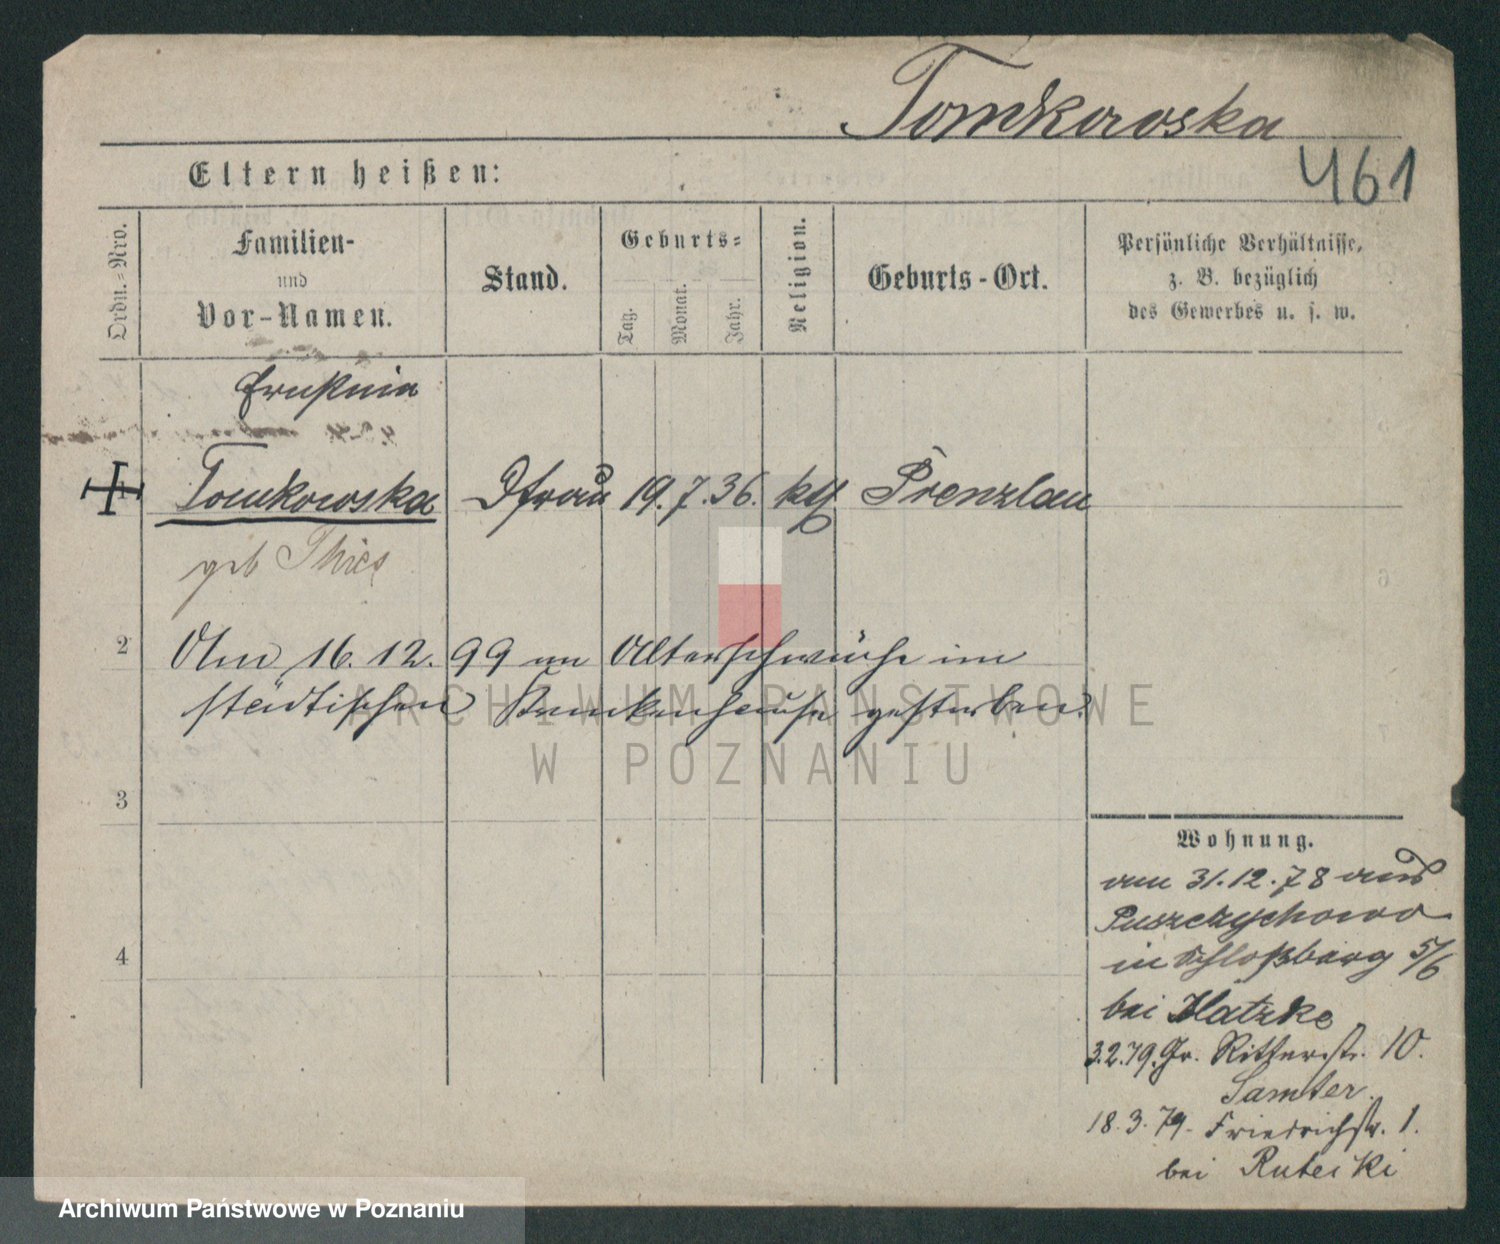 Tomkowska
461
Eltern heißen:
Ordn.-Nro.
Familien-
und
Vor-Namen.
Stand.
Geburts-
Tag.
Monat.
Jahr.
Religion.
Geburts-Ort.
Persönliche Verhältnisse,
z. B. bezüglich
des Gewerbes u. s. w.
Tomkowska Dfrau 19.7.36. kth Prenzlau
geb Thies
2
Am 16.12.99 an Altersschwäche im
städtischen Krankenhause gestorben.
ARCHIWUM PAŃSTWOWE
W POZNANIU
3
4
Wohnung.
am 31.12.78 aus
Puszczychowo
in Schloßberg 5/6
bei Hatzke
3.2.79. Gr. Ritterstr. 10.
Samter.
18.3.79. Friedrichstr. 1.
bei Rutecki
Archiwum Państwowe w Poznaniu